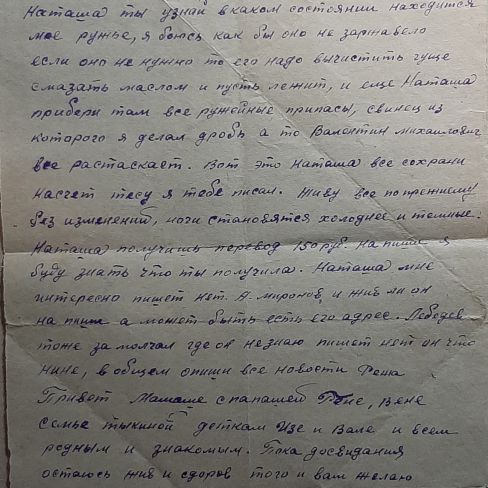 Наташа ты узнай в каком состоянии находится
мое ружье, я боюсь как бы оно не заржавело
если оно не нужно то его надо вычистить гуще
смазать маслом и пусть лежит, и еще Наташа
прибери там все ружейные припасы, свинец из
которого я делал дробь а то Валентин михаилович
все растаскает. Вот это Наташа все сохрани
насчет тесу я тебе писал. Живу все попрежнему
без изменений, ночи становятся холоднее и темные.
Наташа получишь перевод 150 руб. напиши я
буду знать что ты получила. Наташа мне
интересно пишет нет А. миронов, и жив ли он
напиши а может быть есть его адрес. Лебедев
тоже замолчал где он незнаю пишет нет он что
Нине, в общем опиши все новости
Привет Мамаше с папашей Рене, Вене
семье тыкиной деткам Изе и Вале и всем
родным и знакомым. Пока досвидания
остаюсь жив и здоров того и вам желаю